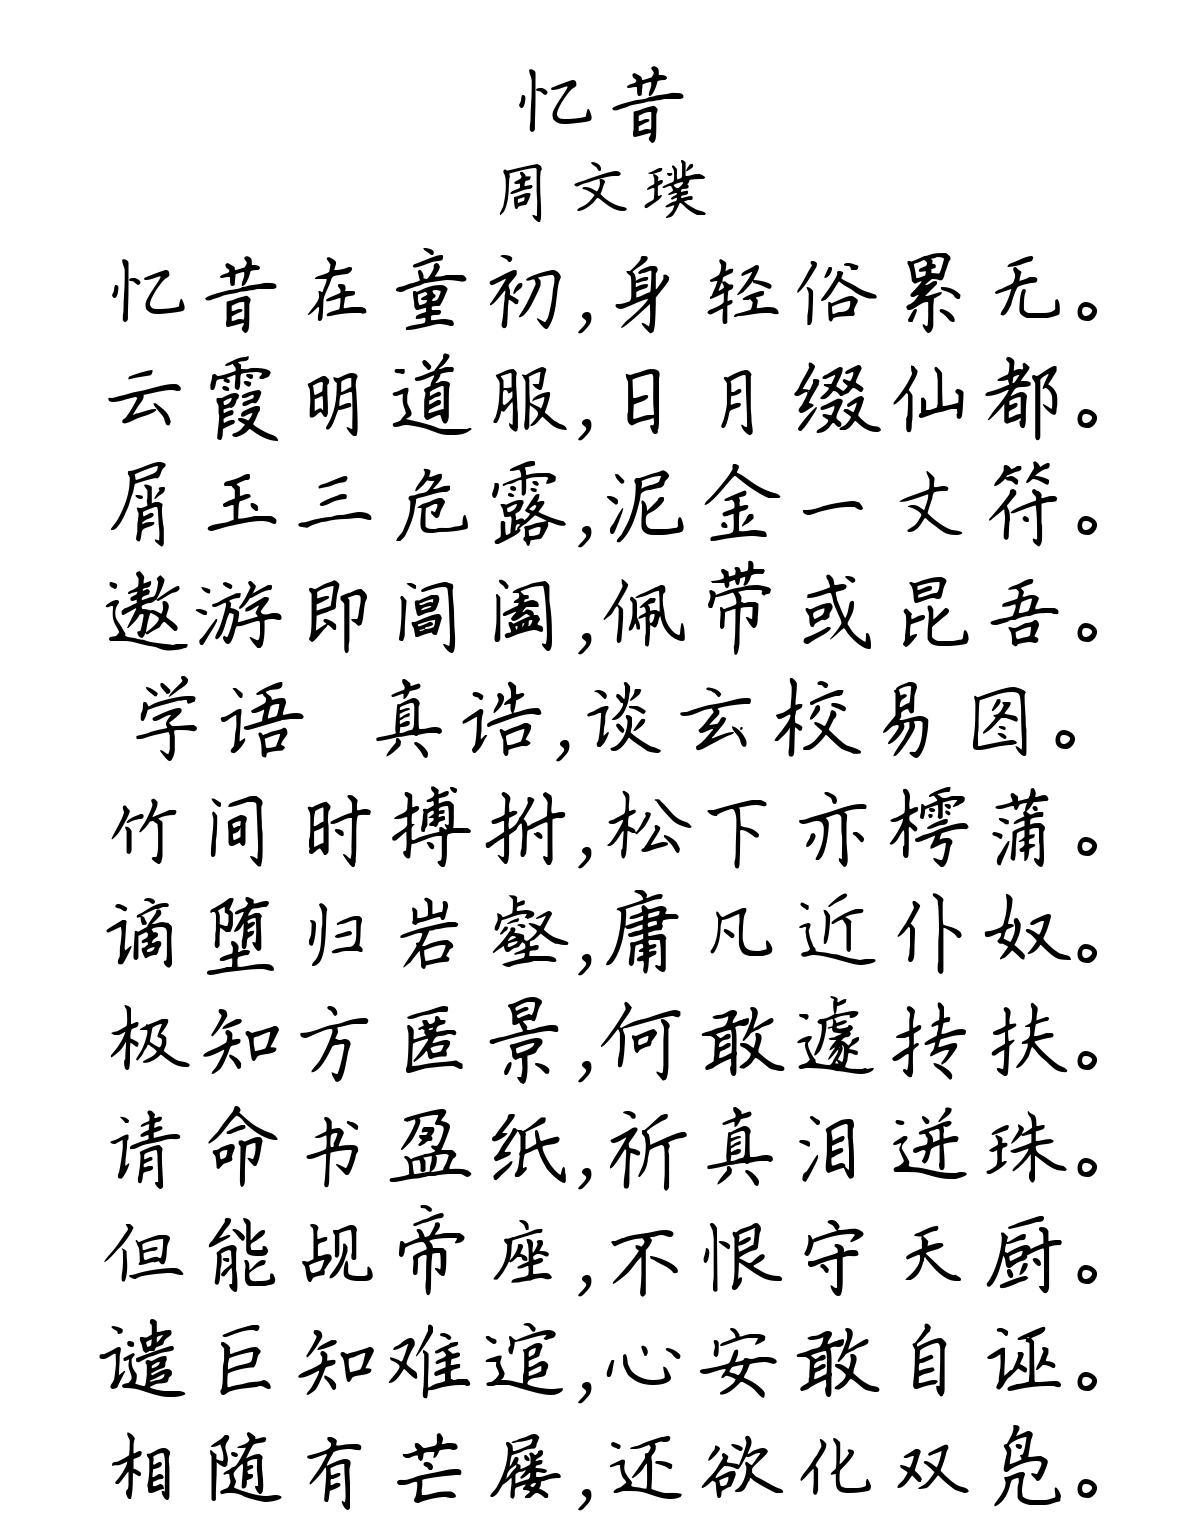 忆昔
周文璞
忆昔在童初,身轻俗累无。
云霞明道服,日月缀仙都。
屑玉三危露,泥金一丈符。
遨游即阊阖,佩带或昆吾。
学语 真诰,谈玄校易图。
竹间时搏拊,松下亦樗蒲。
谪堕归岩壑,庸凡近仆奴。
极知方匿景,何敢遽抟扶。
请命书盈纸,祈真泪迸珠。
但能觇帝座,不恨守天厨。
谴巨知难逭,心安敢自诬。
相随有芒屦,还欲化双凫。